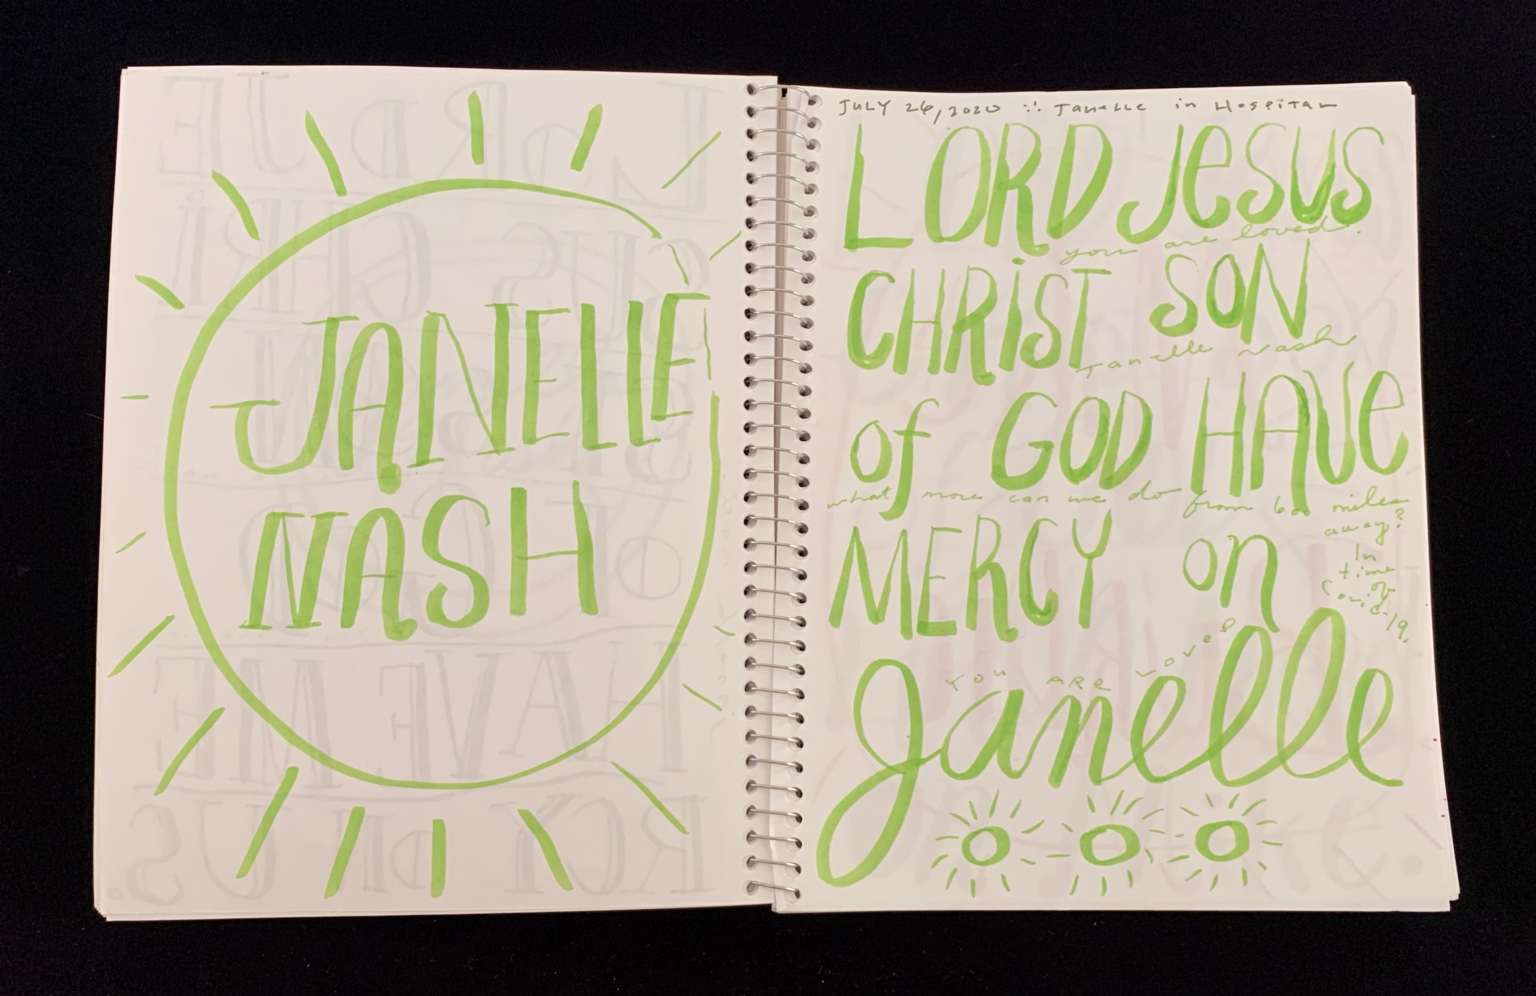 JANELLE
NASH
JULY 26, 2020 ∵ Janelle in Hospital
LORD JESUS
you are loved.
CHRIST SON
Janelle Nash
of GOD HAVE
what more can we do from 600 miles
away?
In
time
of
Covid-19.
MERCY on
YOU ARE LOVED
Janelle